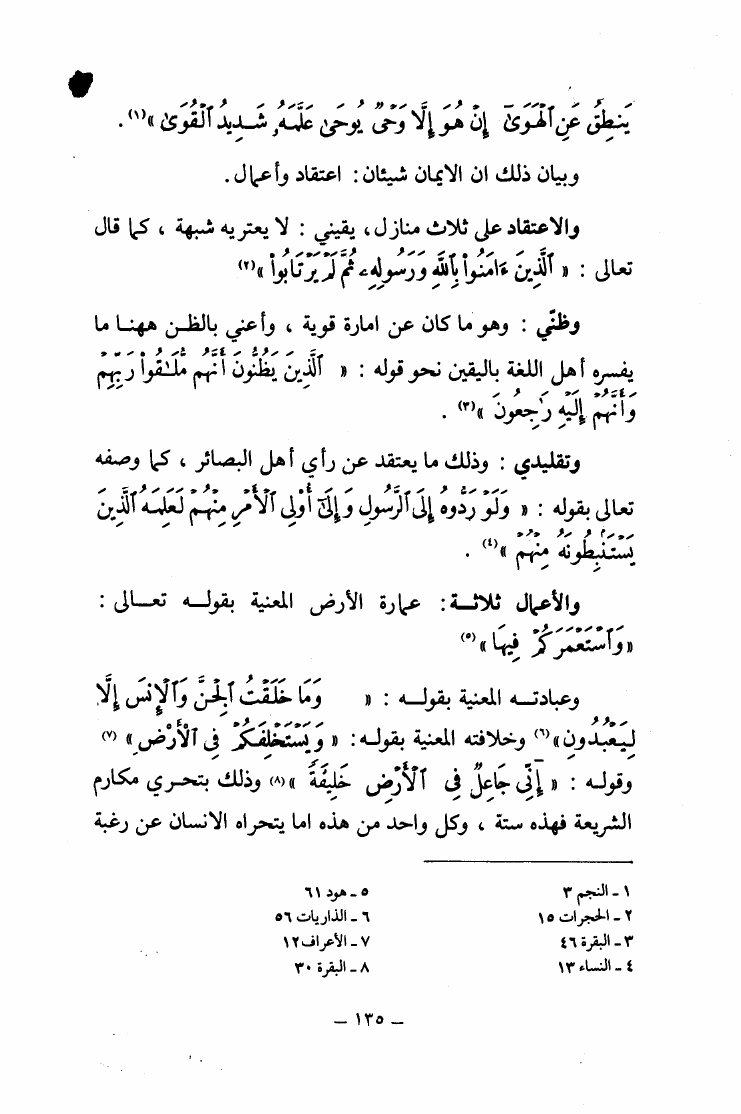 يَنطِقُ عَنِ ٱلْهَوَىٰٓ إِنْ هُوَ إِلَّا وَحْىٌ يُوحَىٰ عَلَّمَهُۥ شَدِيدُ ٱلْقُوَىٰ »(١) .
وبيان ذلك ان الايمان شيئان : اعتقاد وأعمال .
والاعتقاد على ثلاث منازل ، يقيني : لا يعتريه شبهة ، كما قال
تعالى : « ٱلَّذِينَ ءَامَنُوا۟ بِٱللَّهِ وَرَسُولِهِۦ ثُمَّ لَمْ يَرْتَابُوا۟ »(٢)
وظنّي : وهو ما كان عن امارة قوية ، وأعني بالظن ههنا ما
يفسره أهل اللغة باليقين نحو قوله : « ٱلَّذِينَ يَظُنُّونَ أَنَّهُم مُّلَٰقُوا۟ رَبِّهِمْ
وَأَنَّهُمْ إِلَيْهِ رَٰجِعُونَ »(٣) .
وتقليدي : وذلك ما يعتقد عن رأي أهل البصائر ، كما وصفه
تعالى بقوله : « وَلَوْ رَدُّوهُ إِلَى ٱلرَّسُولِ وَإِلَىٰٓ أُو۟لِى ٱلْأَمْرِ مِنْهُمْ لَعَلِمَهُ ٱلَّذِينَ
يَسْتَنۢبِطُونَهُۥ مِنْهُمْ »(٤) .
والأعمال ثلاثة : عمارة الأرض المعنية بقوله تعالى :
« وَٱسْتَعْمَرَكُمْ فِيهَا »(٥)
وعبادته المعنية بقوله : « وَمَا خَلَقْتُ ٱلْجِنَّ وَٱلْإِنسَ إِلَّا
لِيَعْبُدُونِ »(٦) وخلافته المعنية بقوله : « وَيَسْتَخْلِفَكُمْ فِى ٱلْأَرْضِ » (٧)
وقوله : « إِنِّى جَاعِلٌ فِى ٱلْأَرْضِ خَلِيفَةً »(٨) وذلك بتحري مكارم
الشريعة فهذه ستة ، وكل واحد من هذه اما يتحراه الانسان عن رغبة
١ ـ النجم ٣
٢ ـ الحجرات ١٥
٣ ـ البقرة ٤٦
٤ ـ النساء ١٣
٥ ـ هود ٦١
٦ ـ الذاريات ٥٦
٧ ـ الأعراف ١٢
٨ ـ البقرة ٣٠
ـ ١٣٥ ـ